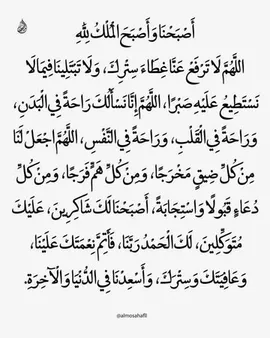 أَصْبَحْنَا وَأَصْبَحَ الْمُلْكُ لِلَّهِ
اللَّهُمَّ لَا تَرْفَعْ عَنَّا غِطَاءَ سِتْرِكَ، وَلَا تَبْتَلِينَا فِيمَا لَا
نَسْتَطِيعُ عَلَيْهِ صَبْرًا، اللَّهُمَّ إِنَّا نَسْأَلُكَ رَاحَةً فِي الْبَدَنِ،
وَرَاحَةً فِي الْقَلْبِ، وَرَاحَةً فِي النَّفْسِ، اللَّهُمَّ اجْعَلْ لَنَا
مِنْ كُلِّ ضِيقٍ مَخْرَجًا، وَمِنْ كُلِّ هَمٍّ فَرَجًا، وَمِنْ كُلِّ
دُعَاءٍ قَبُولًا وَاسْتِجَابَةً، أَصْبَحْنَا لَكَ شَاكِرِينَ، عَلَيْكَ
مُتَوَكِّلِينَ، لَكَ الْحَمْدُ رَبَّنَا، فَأَتِمَّ نِعْمَتَكَ عَلَيْنَا،
وَعَافِيَتَكَ وَسِتْرَكَ، وَأَسْعِدْنَا فِي الدُّنْيَا وَالْآخِرَةِ.
@almosahafii